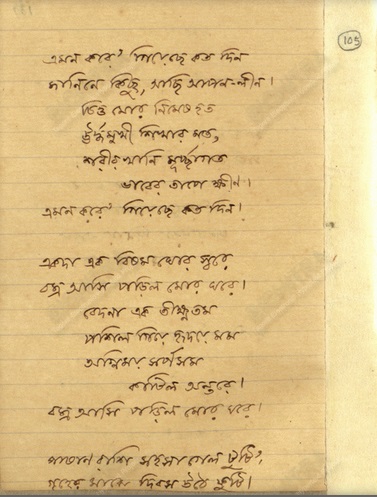 105
এমন করে' গিয়েছে কত দিন
জানিনে কিছু, আছি আপন-লীন।
চিত্ত মোর নিমেষহত
ঊর্দ্ধমুখী শিখার মত,
শরীরখানি মূর্চ্ছাহত
ভাবের তাপে ক্ষীণ।
এমন করে' গিয়েছে কত দিন।
একদা এক বিষম ঘোর স্বরে
বজ্র আসি পড়িল মোর ঘরে।
বেদনা এক তীক্ষ্ণতম
পশিল গিয়ে হৃদয়ে মম
অগ্নিময় সর্পসম
কাটিল অন্তরে।
বজ্র আসি পড়িল মোর ঘরে।
পাষাণরাশি সহসা গেল টুটি',
গৃহের মাঝে দিবস উঠে ফুটি'।